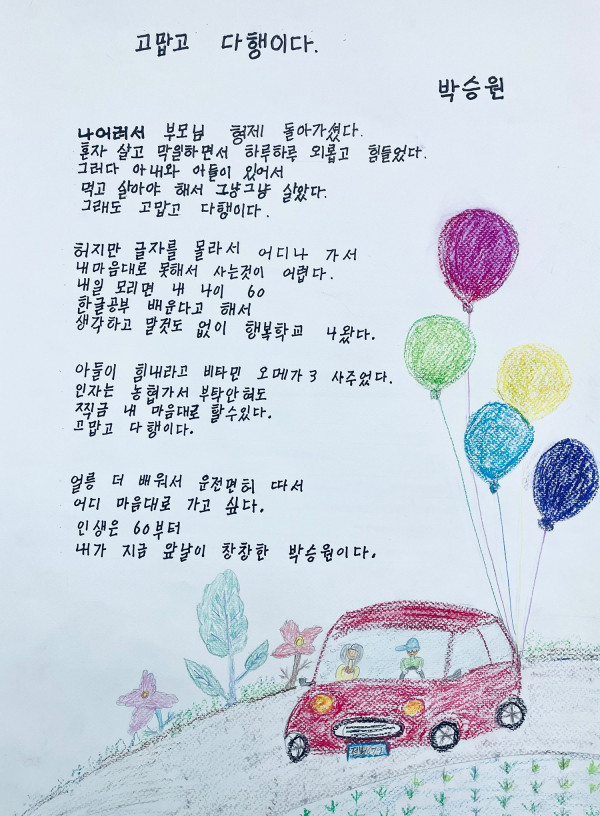 고맙고 다행이다.
박승원
나어려서 부모님 형제 돌아가셨다.
혼자 살고 막일하면서 하루하루 외롭고 힘들었다.
그러다 아내와 아들이 있어서
먹고 살아야 해서 그냥그냥 살았다.
그래도 고맙고 다행이다.
허지만 글자를 몰라서 어디나 가서
내마음대로 못해서 사는것이 어렵다.
내일 모리면 내 나이 60
한글공부 배운다고 해서
생각하고 말것도 없이 행복학교 나왔다.
아들이 힘내라고 비타민 오메가3 사주었다.
인자는 농협가서 부탁안혀도
저금 내 마음대로 할수있다.
고맙고 다행이다.
얼릉 더 배워서 운전면허 따서
어디 마음대로 가고 싶다.
인생은 60부터
내가 지금 앞날이 창창한 박승원이다.